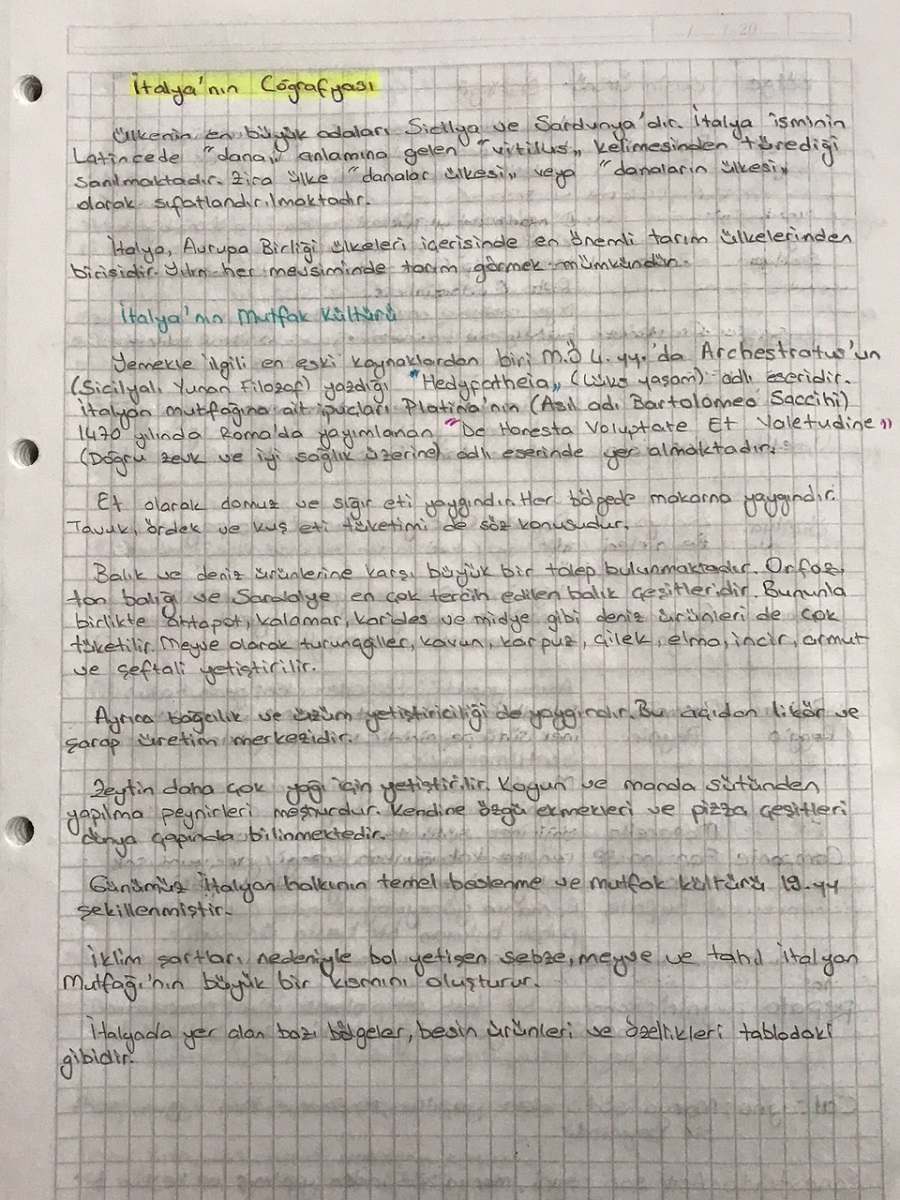 İtalya'nın Coğrafyası
Ülkenin en büyük adaları Sicilya ve Sardunya'dır. İtalya isminin
Latincede "dana„ anlamına gelen "vitilus„ kelimesinden türediği
sanılmaktadır. Zira ülke "danalar ülkesi„ veya "danaların ülkesi„
olarak sıfatlandırılmaktadır.
İtalya, Avrupa Birliği ülkeleri içerisinde en önemli tarım ülkelerinden
birisidir. Yılın her mevsiminde tarım görmek mümkündür.
İtalya'nın Mutfak Kültürü
Yemekle ilgili en eski kaynaklardan biri M.Ö 4. yy.'da Archestratus'un
(Sicilyalı Yunan Filozof) yazdığı "Hedypatheia„ (Lüks yaşam) adlı eseridir.
İtalyan mutfağına ait ipuçları Platina'nın (Asıl adı Bartolomeo Saccihi)
1470 yılında Roma'da yayımlanan "De Honesta Voluptate Et Valetudine"
(Doğru zevk ve iyi sağlık üzerine) adlı eserinde yer almaktadır.
Et olarak domuz ve sığır eti yaygındır. Her bölgede makarna yaygındır.
Tavuk, ördek ve kuş eti tüketimi de söz konusudur.
Balık ve deniz ürünlerine karşı büyük bir talep bulunmaktadır. Orfoz,
ton balığı ve Sardalye en çok tercih edilen balık çeşitleridir. Bununla
birlikte ahtapot, kalamar, karides ve midye gibi deniz ürünleri de çok
tüketilir. Meyve olarak turunçgiller, kavun, karpuz, çilek, elma, incir, armut
ve şeftali yetiştirilir.
Ayrıca bağcılık ve üzüm yetiştiriciliği de yaygındır. Bu açıdan likör ve
şarap üretim merkezidir.
Zeytin daha çok yağı için yetiştirilir. Koyun ve manda sütünden
yapılma peynirleri meşhurdur. Kendine özgü ekmekleri ve pizza çeşitleri
dünya çapında bilinmektedir.
Günümüz İtalyan halkının temel beslenme ve mutfak kültürü 19. yy
şekillenmiştir.
İklim şartları nedeniyle bol yetişen sebze, meyve ve tahıl İtalyan
Mutfağı'nın büyük bir kısmını oluşturur.
İtalyada yer alan bazı bölgeler, besin ürünleri ve özellikleri tablodaki
gibidir.